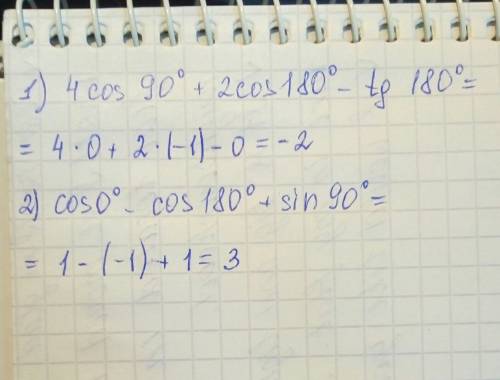 1) 4cos 90° + 2cos180° - tg 180° =
= 4·0 + 2·(-1) - 0 = -2
2) cos0° - cos180° + sin90° =
= 1 - (-1) + 1 = 3